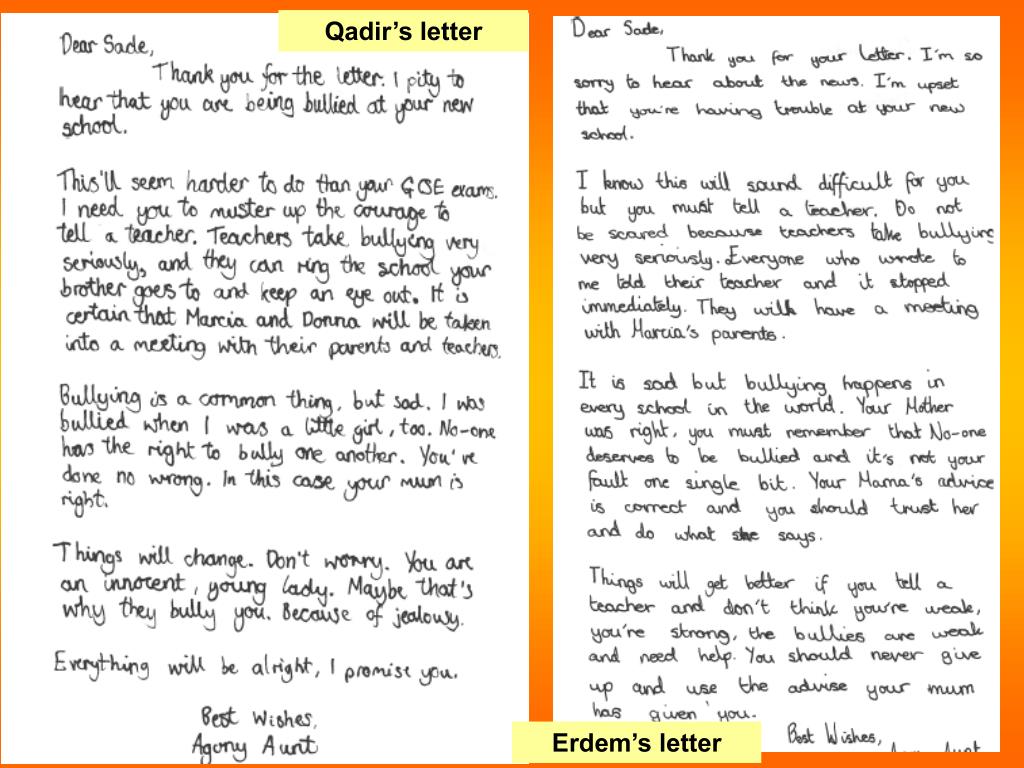 Qadir's letter
Dear Sade,
Thank you for the letter. I pity to
hear that you are being bullied at your new
school.
This'll seem harder to do than your GCSE exams.
I need you to muster up the courage to
tell a teacher. Teachers take bullying very
seriously, and they can ring the school your
brother goes to and keep an eye out. It is
certain that Marcia and Donna will be taken
into a meeting with their parents and teachers.
Bullying is a common thing, but sad. I was
bullied when I was a little girl, too. No-one
has the right to bully one another. You've
done no wrong. In this case your mum is
right.
Things will change. Don't worry. You are
an innocent, young lady. Maybe that's
why they bully you. Because of jealousy.
Everything will be alright, I promise you.
Best Wishes,
Agony Aunt
Dear Sade,
Thank you for your letter. I'm so
sorry to hear about the news. I'm upset
that you're having trouble at your new
school.
I know this will sound difficult for you
but you must tell a teacher. Do not
be scared because teachers take bullying
very seriously. Everyone who wrote to
me told their teacher and it stopped
immediately. They will have a meeting
with Marcia's parents.
It is sad but bullying happens in
every school in the world. Your Mother
was right, you must remember that No-one
deserves to be bullied and it's not your
fault one single bit. Your Mama's advice
is correct and you should trust her
and do what she says.
Things will get better if you tell a
teacher and don't think you're weak,
you're strong, the bullies are weak
and need help. You should never give
up and use the advise your mum
has given you.
Best Wishes,
Agony Aunt
Erdem's letter